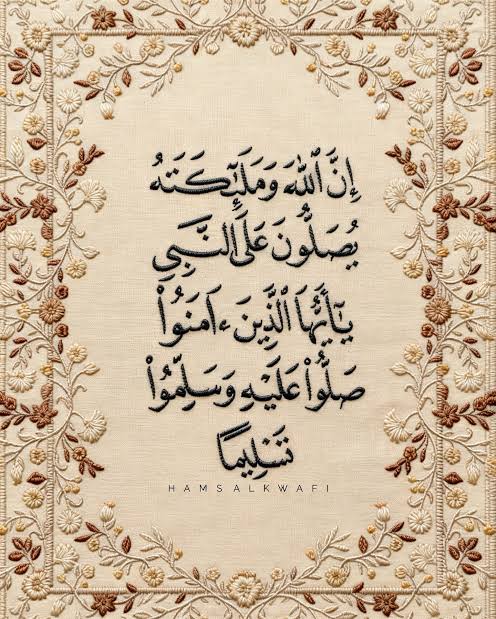 إِنَّ ٱللَّهَ وَمَلَٰٓئِكَتَهُ
يُصَلُّونَ عَلَى ٱلنَّبِيِّ
يَٰٓأَيُّهَا ٱلَّذِينَ ءَامَنُوا۟
صَلُّوا۟ عَلَيْهِ وَسَلِّمُوا۟
تَسْلِيمًا
HAMSALKWAFI